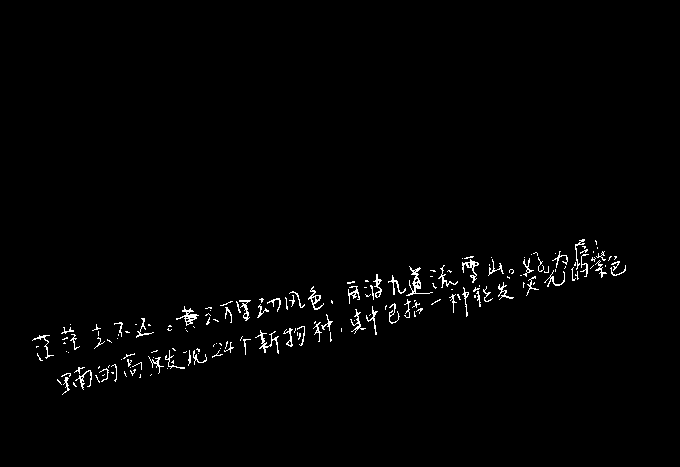 茫茫去不还。黄云万里动风色，白波九道流雪山。好为庐
里南的高原发现24个新物种，其中包括一种能发荧光的紫色